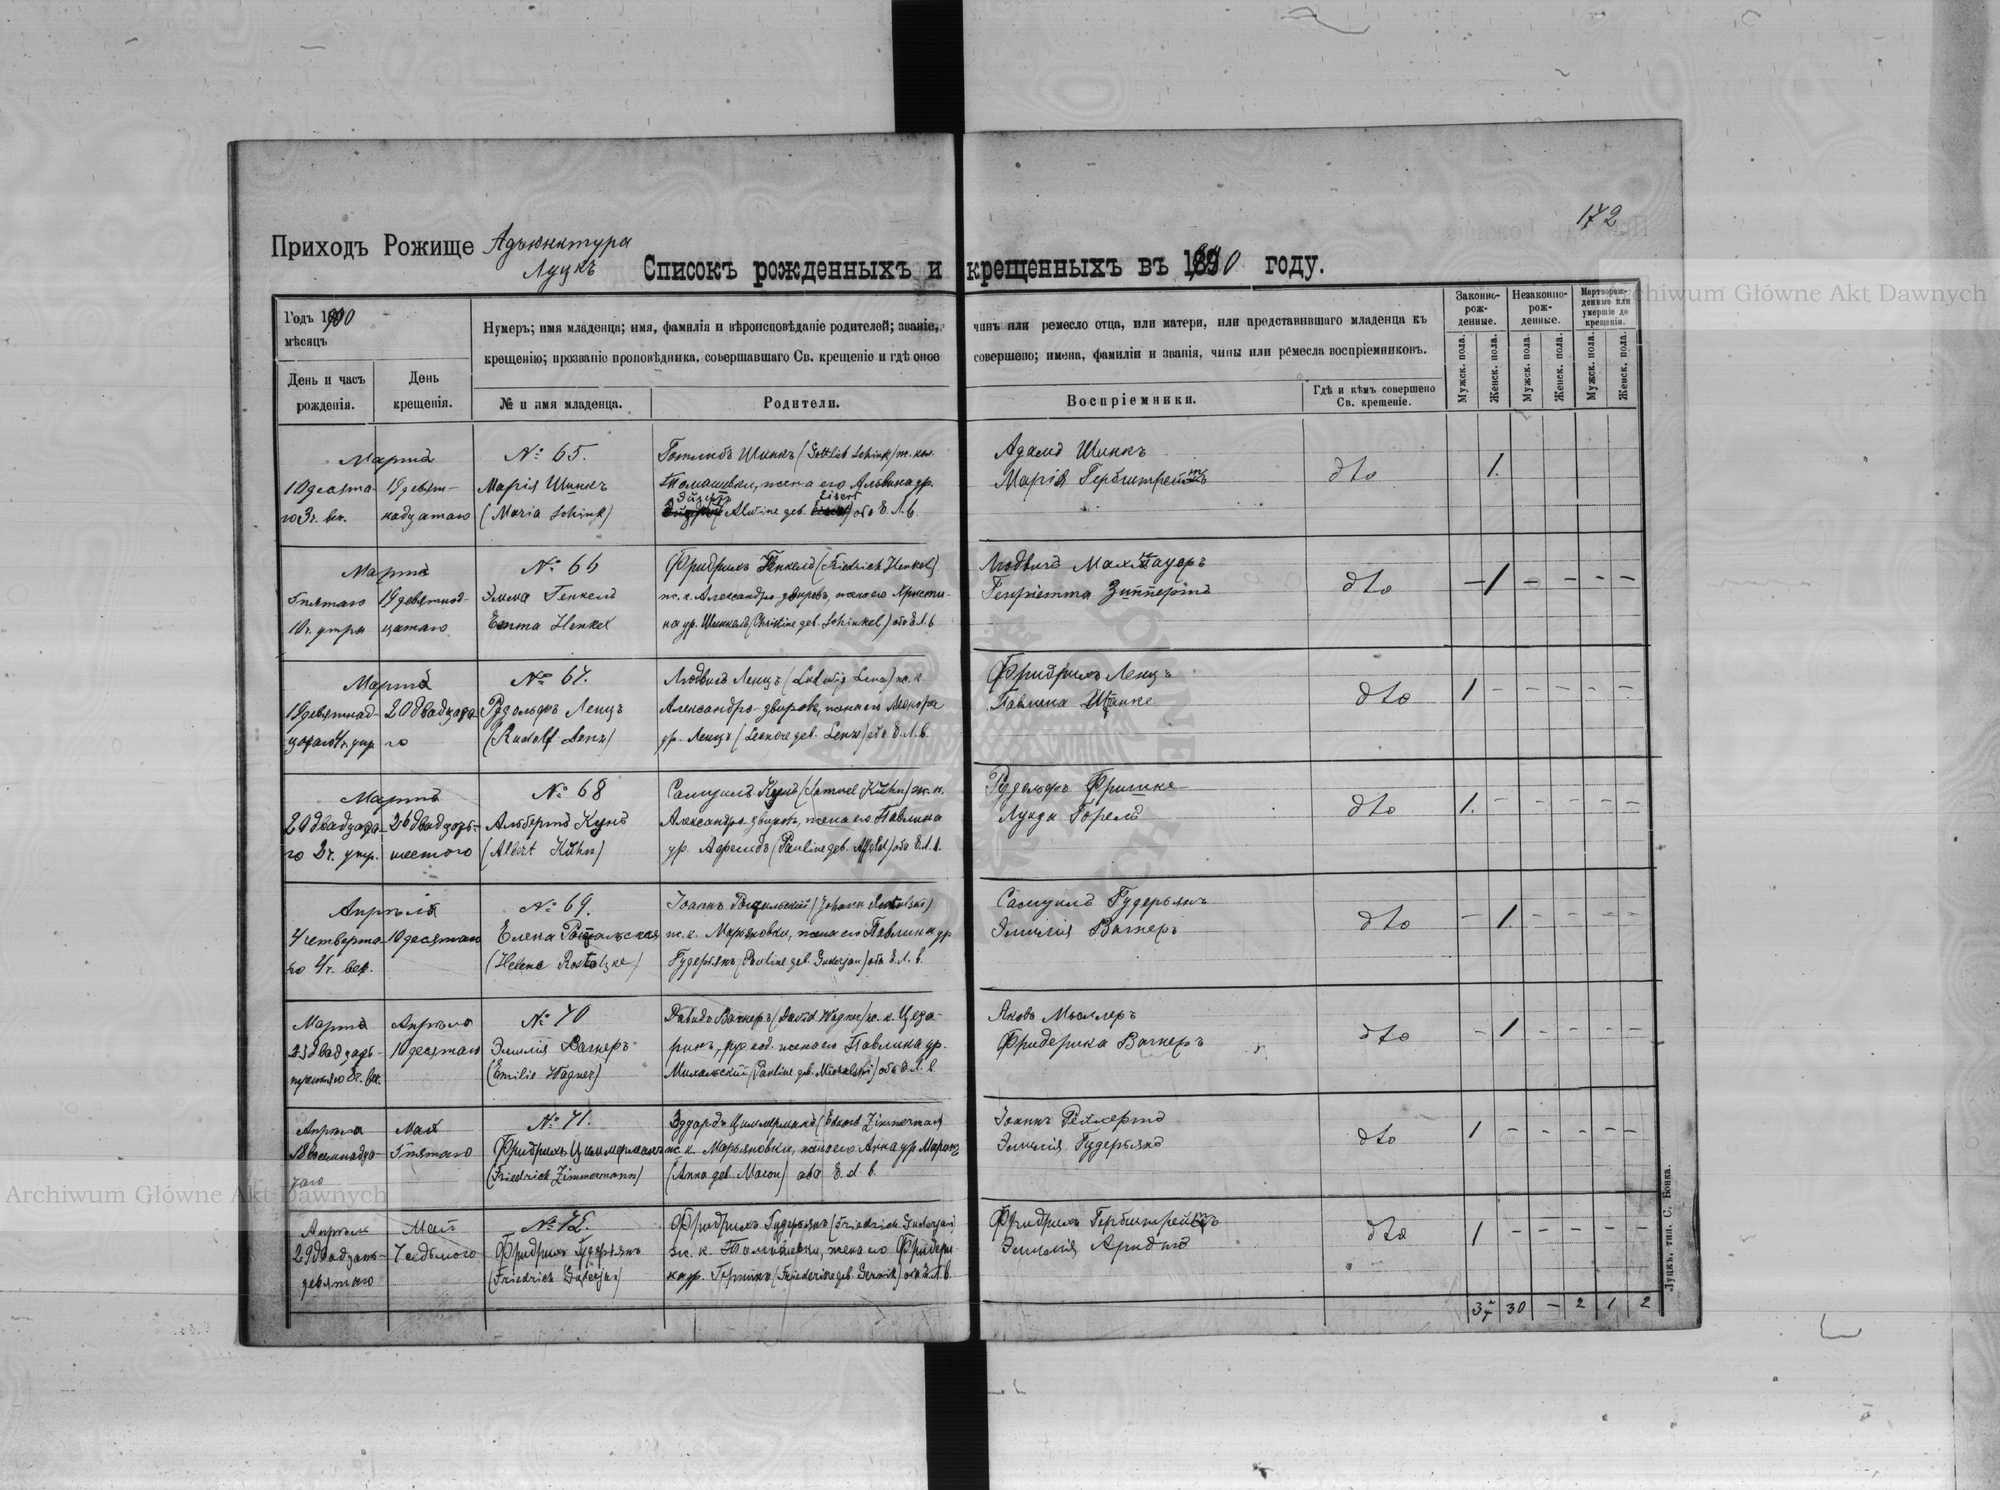 172
Приходъ Рожище Адъюнктура
Луцкъ
Списокъ рожденныхъ и крещенныхъ въ 1900 году.
Годъ 1900
мѣсяцъ
День и часъ рожденія.
День крещенія.
Нумеръ; имя младенца; имя, фамилія и вѣроисповѣданіе родителей; званіе, чинъ или ремесло отца, или матери, или представившаго младенца къ
крещенію; прозваніе проповѣдника, совершавшаго Св. крещеніе и гдѣ оное совершено; имена, фамиліи и званія, чины или ремесла воспріемниковъ.
№ и имя младенца.
Родители.
Воспріемники.
Гдѣ и кѣмъ совершено Св. крещеніе.
Законно-рож-денные.
Незаконно-рож-денные.
Мертворож-денные или умершіе до крещенія.
Мужск. пола. Женск. пола. Мужск. пола. Женск. пола. Мужск. пола. Женск. пола.
Марта
10 десята-
го 3 ч. веч.
19 девят-
надцатаго
№ 65.
Марія Шинкъ
(Maria Schink)
Готлибъ Шинкъ (Gottlieb Schink)
Томашевки, жена его Альвина ур.
Eisert
(Alwine geb. ) оба Е. Л. В.
Адамъ Шинкъ
Марія Гербштрейтъ
dto
1.
Марта
5 пятаго
10 ч. утра
19 девятнад-
цатаго
№ 66
Эмма Генкель
Emma Henkel
Фридрихъ Генкель (Friedrich Henkel)
ж. к. Александро-дворовъ, жена его Христи-
на ур. Шинкель (Christine geb. Schinkel) оба Е. Л. В.
Людвигъ
Генріетта Зиппертъ
dto
– 1 – – – –
Марта
19 девятнад-
цатаго 4 ч. утр.
20 двадцата-
го
№ 67.
Рудольфъ Ленцъ
(Rudolf Lenz)
Людвигъ Ленцъ (Ludwig Lenz) ж. к.
Александро-дворовъ, жена его Леонора
ур. Ленцъ (Leonore geb. Lenz) оба Е. Л. В.
Фридрихъ Ленцъ
Павлина
dto
1 – – – – –
Мартъ
20 двадцата-
го 2 ч. утр.
26 двадцать-
шестого
№ 68
Альбертъ Кунъ
(Albert Kühn)
Самуилъ Кунъ (Samuel Kühn) ж. к.
Александро-дворовъ, жена его Павлина
ур. Афельдъ (Pauline geb. Affeld) оба Е. Л. В.
Рудольфъ Фришке
dto
1. – – – – –
Апрѣля
4 четверта-
го 4 ч. веч.
10 десятаго
№ 69.
Елена
(Helene )
Іоаннъ (Johann )
ж. к. Марьяновки, жена его Павлина ур.
Гудерьянъ (Pauline geb. Guderjan) оба Е. Л. В.
Самуилъ Гудерьянъ
Эмилія Вагнеръ
dto
– 1. – – – –
Марта
23 двадцать-
третьяго 8 ч. веч.
Апрѣля
10 десятаго
№ 70
Эмилія Вагнеръ
(Emilie Wagner)
Давидъ Вагнеръ (David Wagner) ж. к. Цеза-
ринъ, жена его Павлина ур.
Михальскій (Pauline geb. Michalski) оба Е. Л. В.
Яковъ Мюллеръ
Фридерика Вагнеръ
dto
– 1 – – – –
Апрѣля
18 восемнадца-
таго
Май
5 пятаго
№ 71.
Фридрихъ Циммерманъ
(Friedrich Zimmermann)
Эдуардъ Циммерманъ (Eduard Zimmermann
ж. к. Марьяновки, жена его Анна ур.
(Anna geb. ) оба Е. Л. В.
Іоаннъ
Эмилія Гудерьянъ
dto
1 – – – – –
Апрѣля
29 двадцать-
девятаго
Май
7 седьмого
№ 72.
Фридрихъ Гудерьянъ
(Friedrich Guderjan)
Фридрихъ Гудерьянъ (Friedrich Guderjan)
ж. к. жена его Фридери-
ка ур. (Friederike geb. ) оба Е. Л. В.
Фридрихъ Гербштрейтъ
Эмилія
dto
1 – – – – –
37 30 – 2 1 2
Луцкъ, тип. С. Бонка.
Archiwum Główne Akt Dawnych
Archiwum Główne Akt Dawnych